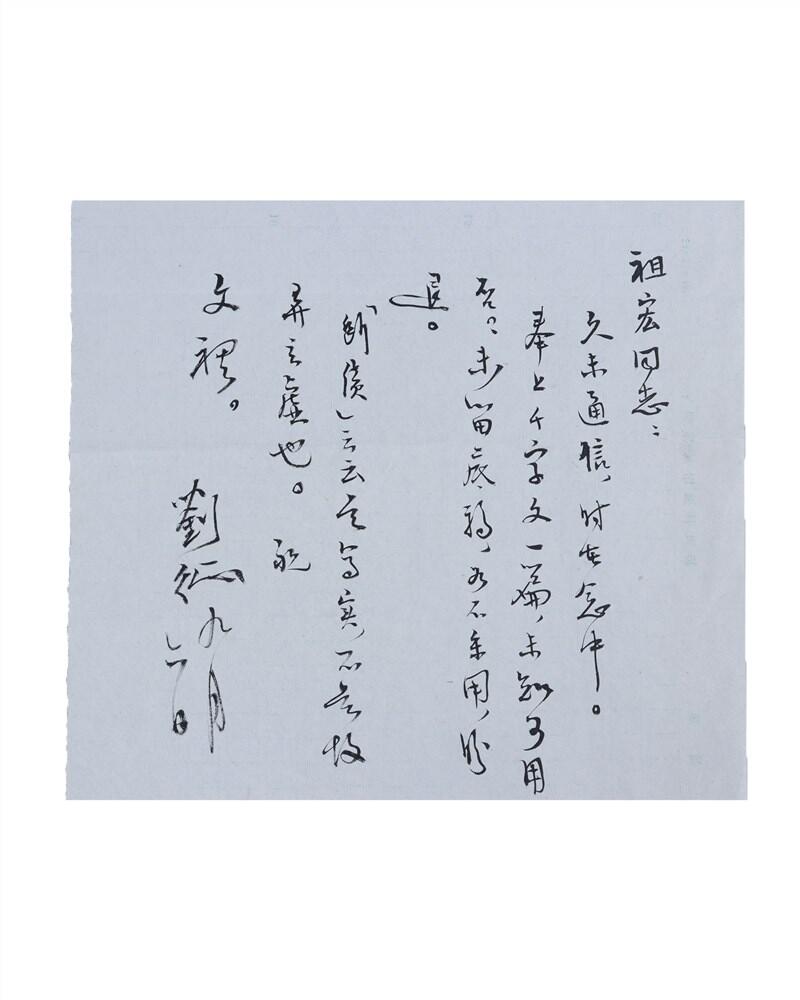 祖宏同志：
久未通信，时在念中。
奉上千字文一篇，未知可用
否？未留底稿，如不采用，盼
退。
「断债」云云是写实，不是故
弄玄虚也。祝
文祺。
劉征 九月
六日